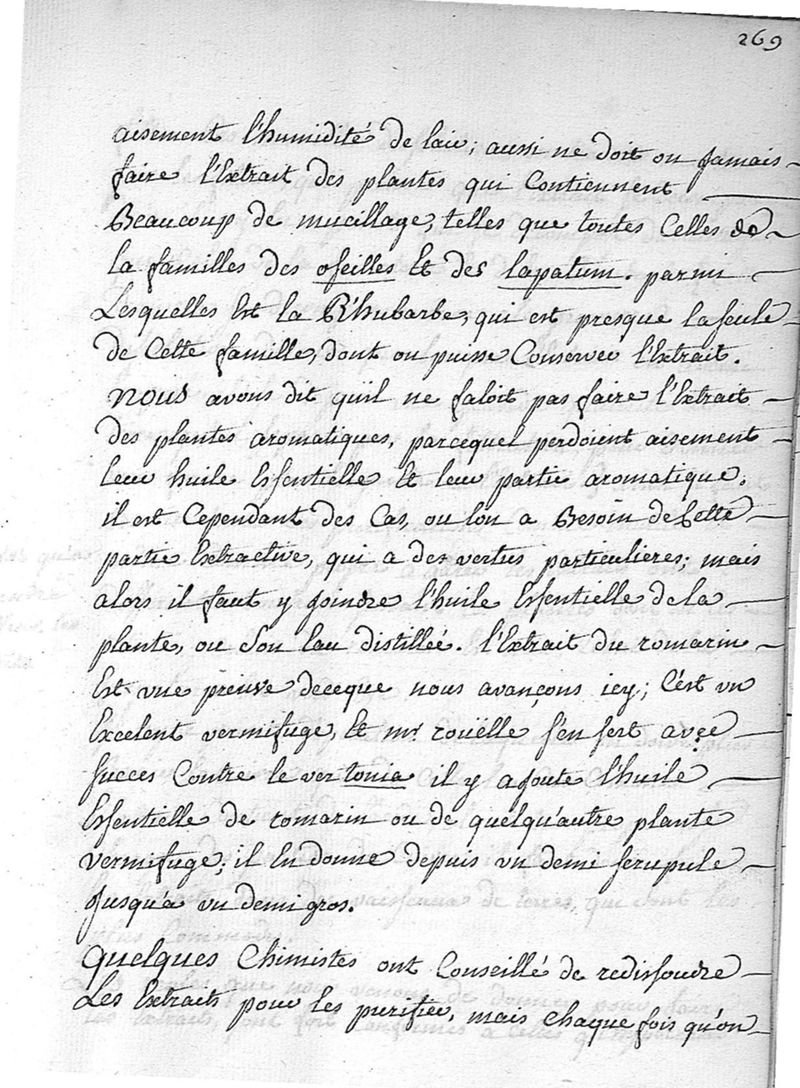 269
aisement l'humidité de lair; aussi ne doit on jamais
faire l'Extrait des plantes qui Contiennent
Beaucoup de mucillage, telles que toutes Celles de
la familles des oseilles Et des lapatum. parmi
Lesquelles Est la Rhubarbe, qui est presque la seule
de Cette famille, dont on puisse Conserver l'Extrait.
nous avons dit quil ne faloit pas faire l'Extrait
des plantes aromatiques, parcequel perdoient aisement
leur huile Essentielle Et leur partie aromatique.
il est Cependant des Cas, ou lon a Besoin de Cette
partie Extractive, qui a des vertus particulieres; mais
alors il faut y joindre l'huile Essentielle de la
plante, ou Son Eau distillée. l'Extrait du romarin
Est vne preuve deceque nous avançons icy; C'est vn
Excelent vermifuge, Et mr. rouëlle s'en sert avec
succes Contre le ver tonia il y ajoute l'huile
Essentielle de romarin ou de quelqu'autre plante
vermifuge; il En donne depuis vn demi scrupule
jusqu'a vn demi gros.
quelques Chimistes ont Conseillé de redissoudre
Les Extraits pour les purifier, mais chaque fois qu'on